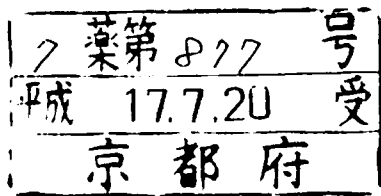 7薬第877号
平成 17.7.20 受
京都府